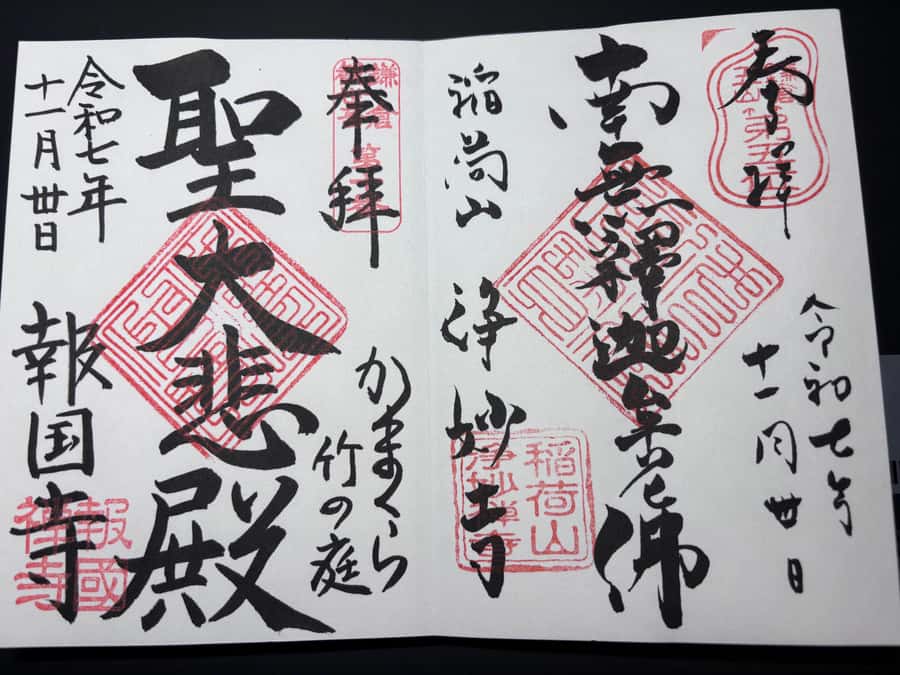 奉拝
第五位
令和七年
十一月卅日
南無釋迦牟尼佛
稲荷山 浄妙寺
稲荷山
浄妙禅寺
奉拝
かまくら
竹の庭
聖大悲殿
令和七年
十一月卅日
報国寺
報國
禅寺